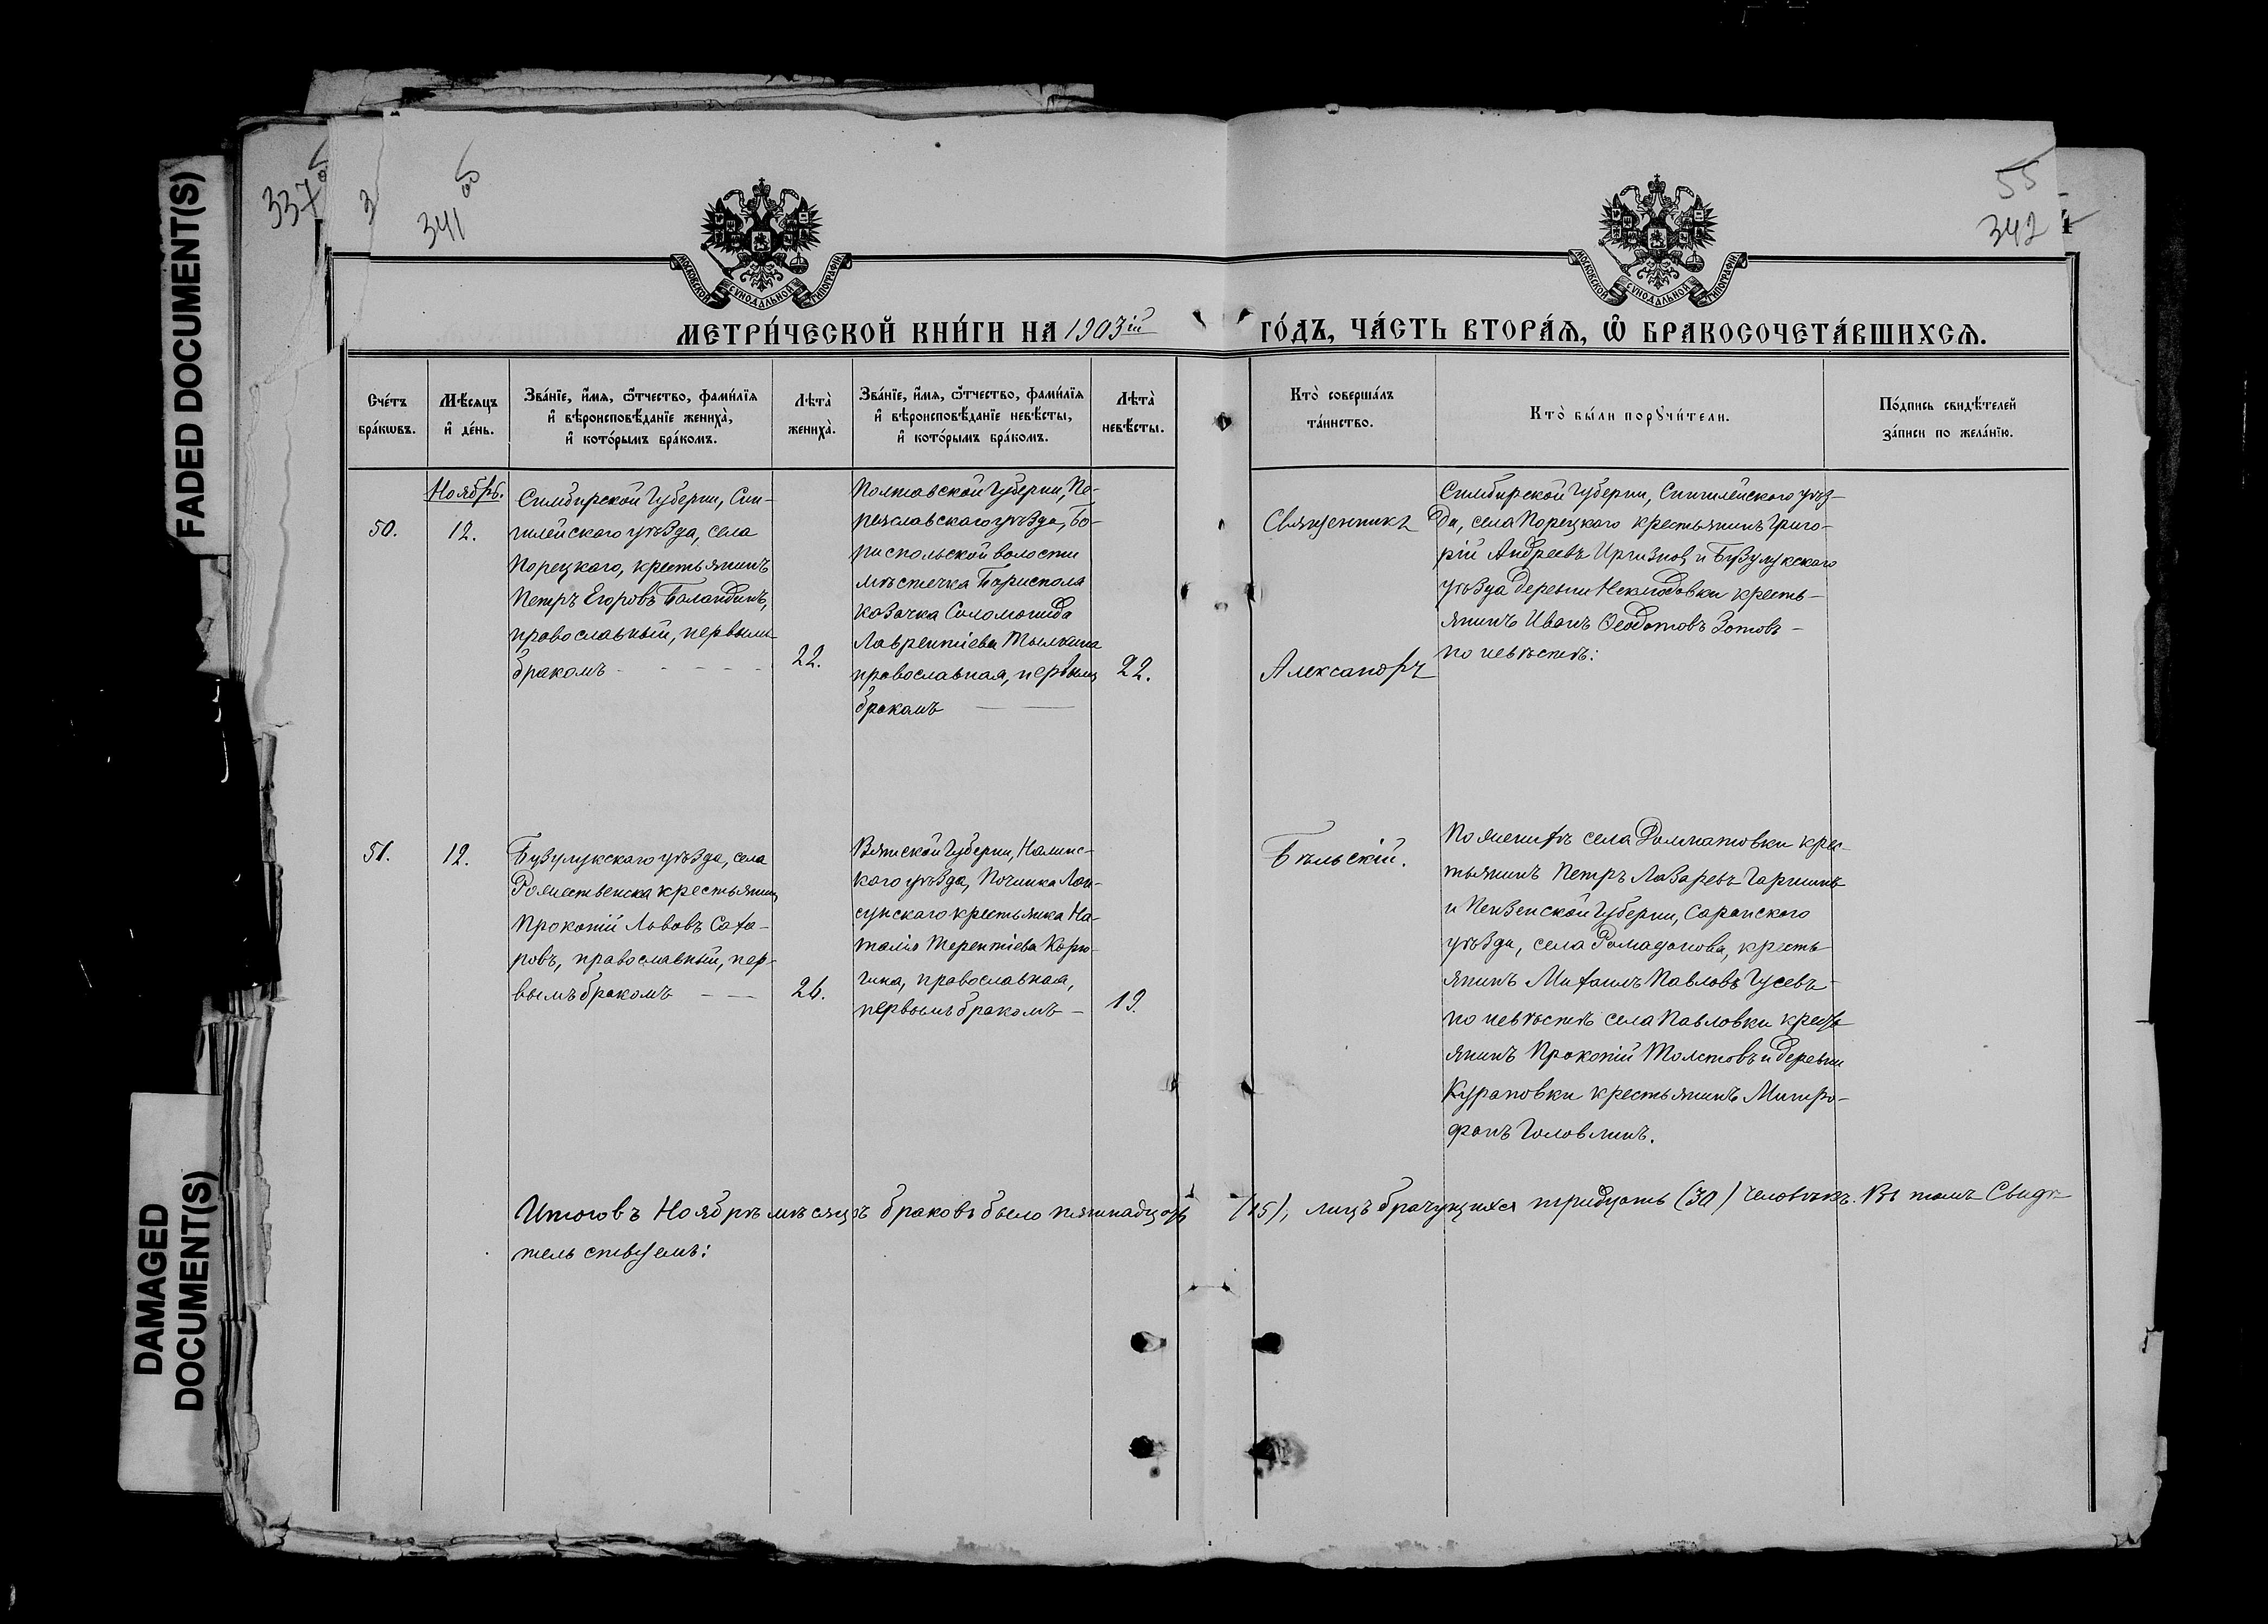 FADED DOCUMENT(S)
DAMAGED
DOCUMENT(S)
337
341
55
342
МОСКОВСКОЙ СУНОДАЛЬНОЙ ТИПОГРАФІИ
МОСКОВСКОЙ СУНОДАЛЬНОЙ ТИПОГРАФІИ
МЕТРИ́ЧЕСКОЙ КНИ́ГИ НА 1903ій ГО́ДЪ, ЧА́СТЬ ВТОРА́Я, Ѡ҆ БРАКОСОЧЕТА́ВШИХСЯ.
Сче́тъ
бра́кωвъ.
Мѣ́сяцъ
и҆ де́нь.
Зва́нїе, и҆́мя, ѻ҆́тчество, фами́лїя
и҆ вѣроисповѣ́данїе жениха̀,
и҆ кото́рымъ бра́комъ.
Лѣта̀
жениха̀.
Зва́нїе, и҆́мя, ѻ҆́тчество, фами́лїя
и҆ вѣроисповѣ́данїе невѣ́сты,
и҆ кото́рымъ бра́комъ.
Лѣта̀
невѣ́сты.
Кто̀ соверша́лъ
та́инство.
Кто̀ бы́ли порꙋчи́тели.
По́дпись свидѣ́телей
за́писи по жела́нїю.
Ноябрь.
50.
12.
Симбирской Губерніи, Син-
гилейскаго уѣзда, села
Порецкаго, крестьянинъ
Петръ Егоровъ Баландинъ,
православный, первымъ
бракомъ
22.
Полтавской Губерніи, Пе-
реяславскаго уѣзда, Бо-
риспольской волости
мѣстечка Борисполя
козачка Соломонида
Лаврентіева
православная, первымъ
бракомъ
22.
Священникъ
Александръ
Симбирской Губерніи, Сингилейскаго уѣз-
да, села Порецкаго крестьянинъ Григо-
рій Андреевъ и Бузулукскаго
уѣзда деревни Неклюдовки кресть-
янинъ Иванъ Ѳеодотовъ Зотовъ
по невѣстѣ:
51.
12.
Бузулукскаго уѣзда, села
Рождественска крестьянинъ
Прокопій Львовъ Саха-
ровъ, православный, пер-
вымъ бракомъ
26.
Вятской Губерніи, Малмыс-
каго уѣзда, Починка
крестьянка На-
талія Терентіева Корю-
гина, православная,
первымъ бракомъ
19.
Бѣльскій.
По женихѣ села Долматовки крес-
тьянинъ Петръ Лазаревъ Гаршинъ
и Пензенской Губерніи, Саранскаго
уѣзда, села Ромаданова, кресть
янинъ Михаилъ Павловъ Гусевъ
по невѣстѣ села Павловки кресть
янинъ Прокопій Толстовъ и деревни
Курановки крестьянинъ Митро-
фанъ Головлинъ.
Итого въ Ноябрѣ мѣсяцѣ браковъ было пятнадцать (15), лицъ брачущихся тридцать (30) человѣкъ. Въ томъ Свидѣ-
тельствуемъ: